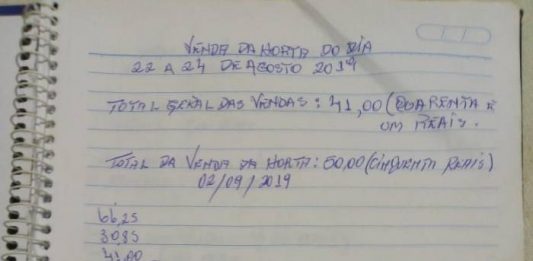 VENDA DA HORTA DO DIA
22 A 24 DE AGOSTO 2019
TOTAL GERAL DAS VENDAS: 41,00 (QUARENTA E
UM REAIS.
TOTAL DA VENDA DA HORTA: 50,00 (CINQUENTA REAIS)
02/09/2019
66,25
30,85
41,00